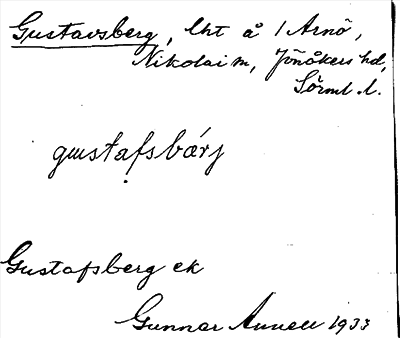 Gustavsberg, lht å 1 Arnö,
Nikolai m, Jönåkers hd,
Sörml. l.
gustafsbárj
Gustafsberg ek
Gunnar Annell 1933